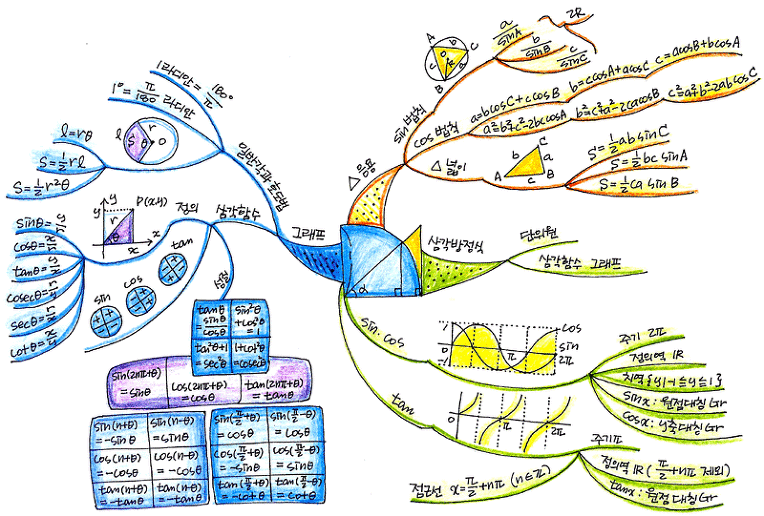 1라디안 = 180°/π
1° = π/180 라디안
일반각과 호도법
l = rθ
S = ½rl
S = ½r²θ
l
r
S
θ
O
삼각함수
그래프
정의
sinθ = y/r
cosθ = x/r
tanθ = y/x
cosecθ = r/y
secθ = r/x
cotθ = x/y
y
y
P(x,y)
r
θ
x
x
sin
cos
tan
성질
tanθ = sinθ/cosθ
sin²θ + cos²θ = 1
tan²θ+1 = sec²θ
1+cot²θ = cosec²θ
sin(2nπ+θ) = sinθ
cos(2nπ+θ) = cosθ
tan(2nπ+θ) = tanθ
sin(π+θ) = -sinθ
sin(π-θ) = sinθ
cos(π+θ) = -cosθ
cos(π-θ) = -cosθ
tan(π+θ) = tanθ
tan(π-θ) = -tanθ
sin(π/2+θ) = cosθ
sin(π/2-θ) = cosθ
cos(π/2+θ) = -sinθ
cos(π/2-θ) = sinθ
tan(π/2+θ) = -cotθ
tan(π/2-θ) = cotθ
△ 응용
sin법칙
a/sinA
b/sinB
c/sinC
2R
A
B
C
cos법칙
a=bcosC+ccosB
b=ccosA+acosC
c=acosB+bcosA
a²=b²+c²-2bccosA
b²=c²+a²-2cacosB
c²=a²+b²-2abcosC
△ 넓이
A
B
C
b
a
S=½ab sinC
S=½bc sinA
S=½ca sinB
삼각방정식
단위원
삼각함수 그래프
sin. cos
1
0
-1
π
2π
cos
sin
주기 2π
정의역 ℝ
치역 {y|-1≦y≦1}
sinx : 원점대칭 Gr
cosx : y축대칭 Gr
tan
0
π
2π
주기 π
정의역 ℝ (π/2+nπ 제외)
tanx : 원점대칭 Gr
점근선 x=π/2+nπ (n∈ℤ)